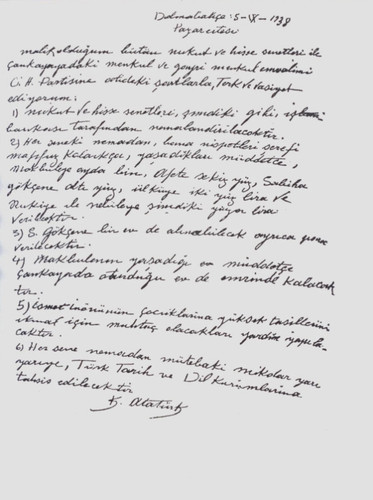 Dolmabahçe: 5-IX-1938
Pazartesi
Malik olduğum bütün nukut ve hisse senetleri ile
Çankayadaki menkul ve gayri menkul emvalimi
C. H. Partisine atideki şartlarla, Terk ve Vasiyet
ediyorum:
1) Nukut ve hisse senetleri, şimdiki gibi, iş
bankası tarafından nemalandırılacaktır.
2) Her seneki nemadan, bana nispetleri şerefi
mahfuz kaldıkça, yaşadıkları müddetçe,
Makbuleye ayda bin, Afete sekiz yüz, Sabiha
Gökçene altı yüz, Ülküye iki yüz lira ve
Rukiye ile Nebileye şimdiki yüzer lira
verilecektir.
3) S. Gökçene bir ev de alınabilecek ayrıca para
verilecektir.
4) Makbulenin yaşadığı müddetçe
Çankayada oturduğu ev de emrinde kalacak
tır.
5) İsmet İnönünün çocuklarına yüksek tahsillerini
ikmal için muhtaç olacakları yardım yapıla-
caktır.
6) Her sene nemadan mütebaki miktar yarı
yarıya, Türk Tarih ve Dil Kurumlarına
tahsis edilecektir
K. Atatürk